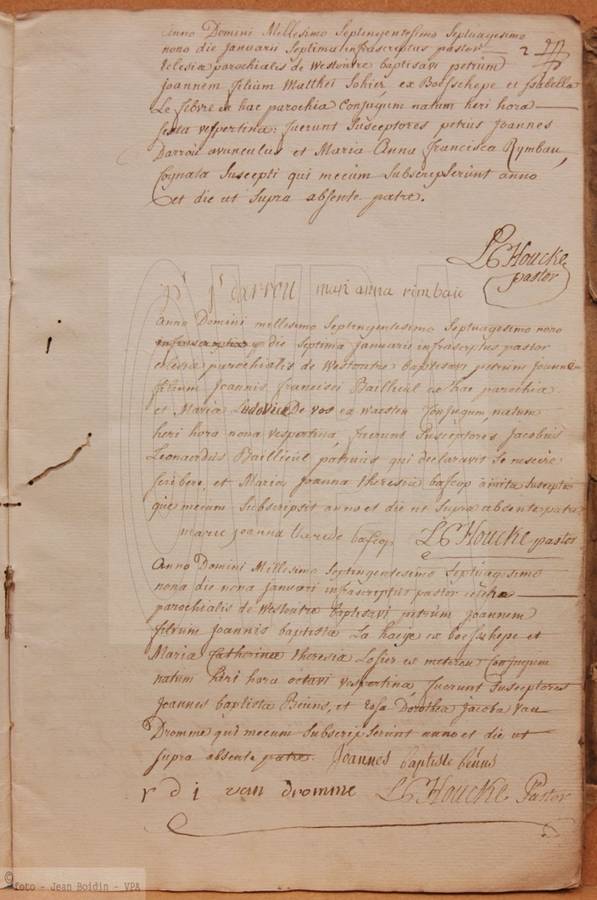 Anno Domini Millesimo Septingentesimo Septuagesimo
nono die Januarii Septima infrascriptus pastor
Eclesiæ parochialis de Westoutre baptisavi petrum
joannem filium Matthei Sohier ex Boesschepe et Isabella
Le febvre ex hac parochia Conjugum natum heri hora
sexta vespertina: fuerunt Susceptores petrus Joannes
Darrou avunculus et Maria Anna francisca Rymbau,
Cognata Suscepti qui mecum Subscripserunt anno
et die ut Supra absente patre.
LC Houcke
pastor
pr js darrou mari anna rimbau
Anno Domini millesimo Septingentesimo Septuagesimo nono
die Septima Januarii infrascriptus pastor
eclesiæ parochialis de Westoutre baptisavi petrum joannem
filium Joannis francisci Bailleul ex hac parochia
et Maria Ludovica De vos ex Waesten Conjugum, natum
heri hora nona vespertina, fuerunt Susceptores Jacobus
Leonardus Baillieul patruus qui declaravit Se nescire
Scribere, et Maria Joanna theresia bascop amita Suscepti
que mecum Subscripsit anno et die ut Supra absente patre
marie joanna therede bascop LC Houcke pastor
Anno Domini Millesimo Septingentesimo Septuagesimo
nono die nona Januarii infrascriptus pastor
parochialis de Westoutre baptisavi petrum joannem
filium Joannis baptista La haije ex boesschepe et
Maria Catharina theresia Loser ex meteren Conjugum
natum heri hora octava vespertina, fuerunt Susceptores
Joannes baptista Beuns, et rosa Dorothea Jacoba Van
Dromme qui mecum Subscripserunt anno et die ut
Supra absente patre. Joannes baptiste beuns
r d i van dromme LC Houcke Pastor
©foto - Jean Boidin - VPA